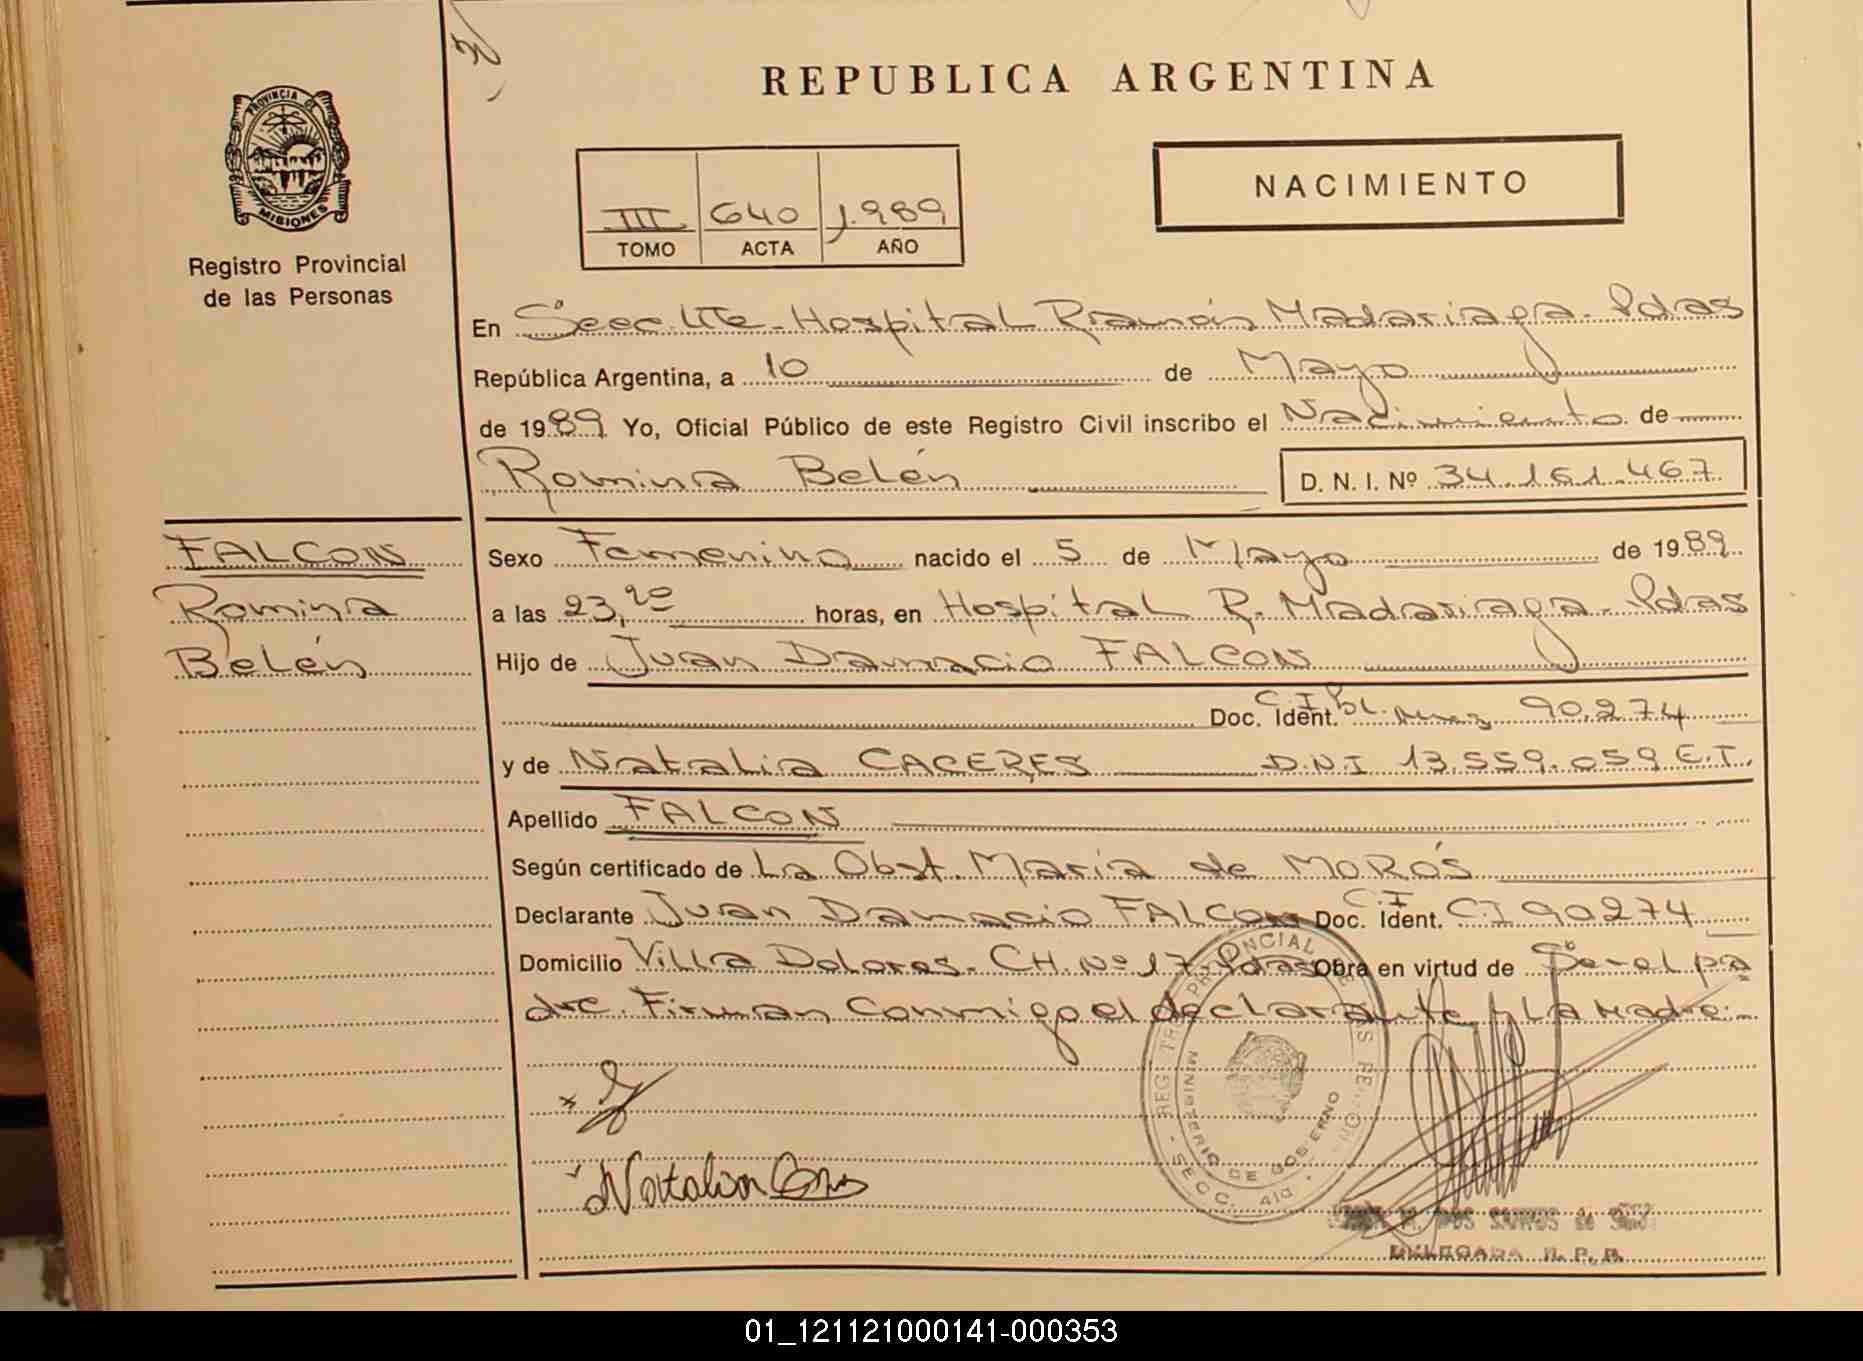 REPUBLICA ARGENTINA
PROVINCIA DE
MISIONES
Registro Provincial
de las Personas
III 640 1.989
TOMO ACTA AÑO
NACIMIENTO
En Secc. Hospital Ramón Madariaga - Pdas
República Argentina, a 10 de Mayo
de 1989 Yo, Oficial Público de este Registro Civil inscribo el Nacimiento de
Romina Belén D. N. I. Nº 34.161.467
FALCON
Romina
Belén
Sexo Femenino nacido el 5 de Mayo de 1989
a las 23,20 horas, en Hospital R. Madariaga - Pdas
Hijo de Juan Damacio FALCON
Doc. Ident. C.I. 90.274
y de Natalia CACERES D.N.I 13.559.059 E.T.
Apellido FALCON
Según certificado de La Obst. Maria de MOROS
Declarante Juan Damacio FALCON Doc. Ident. C.I 90274
Domicilio Villa Dolores - CH. Nº 17 - Pdas Obra en virtud de Ser el pa
dre. Firman Conmigo el declarante y La Madre.-
Natalia
MINISTERIO DE GOBIERNO
SECC. 4ta
DELEGADA R. P. P.
01_121121000141-000353